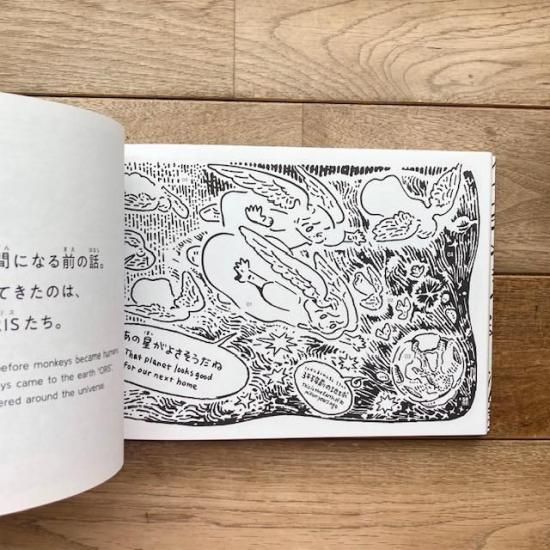 間になる前の話。
てきたのは、
RISたち。
before monkeys became humans
ys came to the earth "ORIS"
ered around the universe.
あの星がよさそうだね
That planet looks good
for our next home